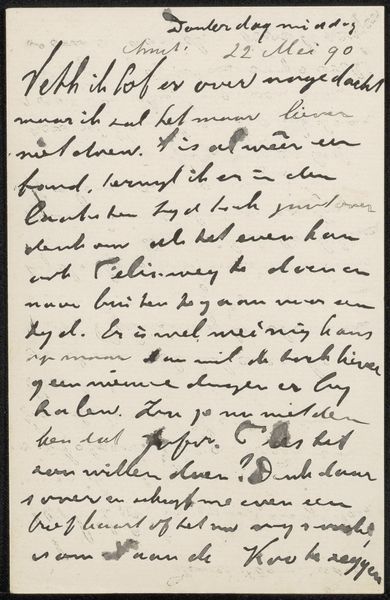 Donderdagmiddag
22 Mei 90
Veth ik heb er over nagedacht
maar ik zal het maar liever
niet doen. t is al wéér een
band, terwyl ik er in den
laatsten tyd toch juist over
denk om als het even kan
ook weg te doen en
naar buiten te gaan voor een
tyd. Er is wel weinig kans
op maar dan wil ik toch liever
geen nieuwe dingen er by
halen. Zou je nu niet den
ken dat het
een willen doen? Denk daar
s over en schryf me even een
briefkaart of het nu
is om aan de Koo te zeggen